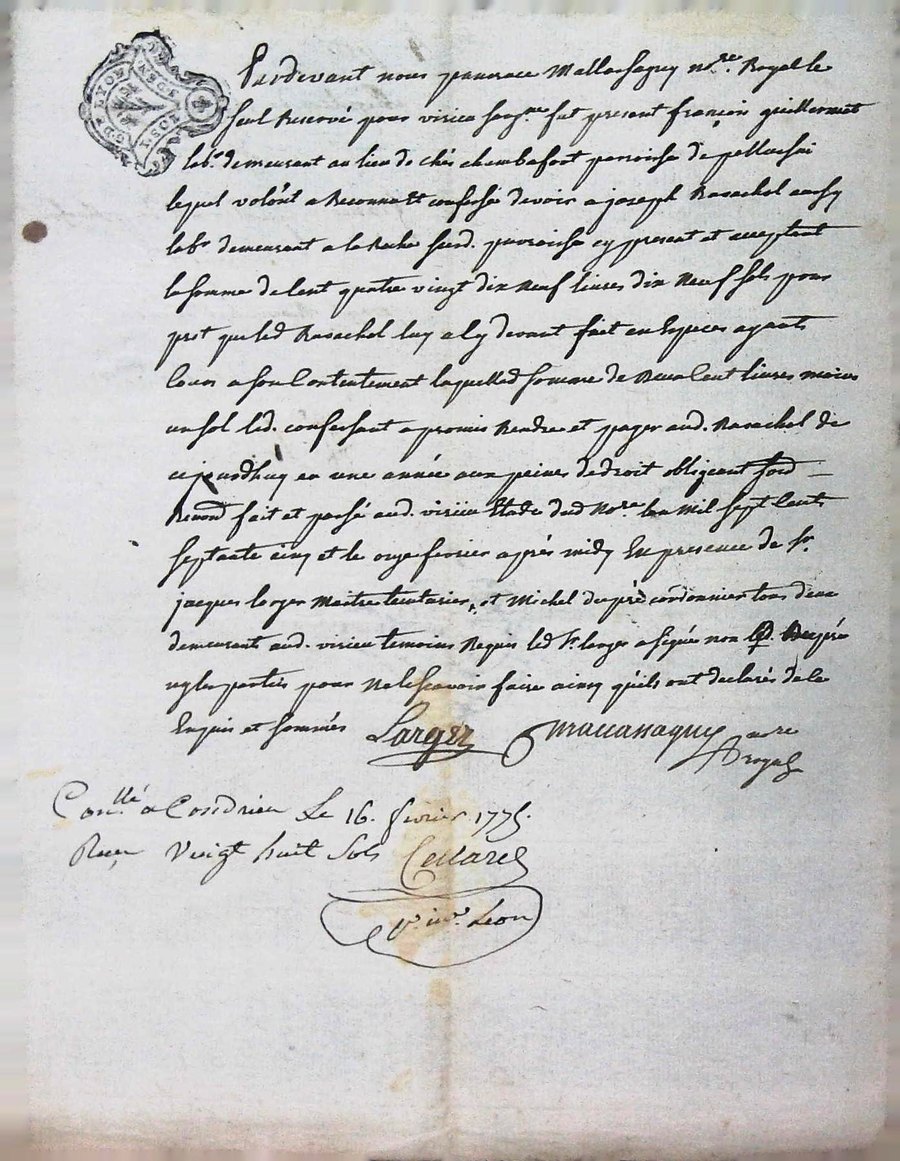 Pardevant nous pancrace Mallassagny no.re Royal le
seul Reservé pour virieu soug.ne fut present françois guillermet
lab.r demeurant au lieu de chés chembefort parroisse de pellussin
lequel volont a Reconnu et confessé devoir a joseph Barachol aussy
lab.r demeurant a la Roche susd. parroisse cy present et acceptant
la somme de Cent quatre vingt dix Neuf livres dix Neuf sols pour
pret que led Barachol luy a Cy devant fait en Especes ayants
Cours a son Contentement laquelled somme de deux Cent livres moins
un sol led. confessant a promis Rendre et payer aud. Barachol de
cejourdhuy en une année aux peines de droit obligeant
Renond fait et passé aud. virieu Etude dud No.re Lan Mil sept Cents
septante cinq et le onze fevrier après midy En presence de S.r
jacques larger Maitre teinturier, et Michel dupré cordonnier tous deux
demeurants aud. virieu temoins Requis led S.r larger a signé non led. dupré
ny les parties pour Ne le sçavoir faire ainsy qu'ils ont declarés de ce
Enquis et sommés Larger Mallassagny no.re
royal
Con.llé a Condrieu Le 16. fevrier 1775.
Reçu Vingt huit sols Cellard